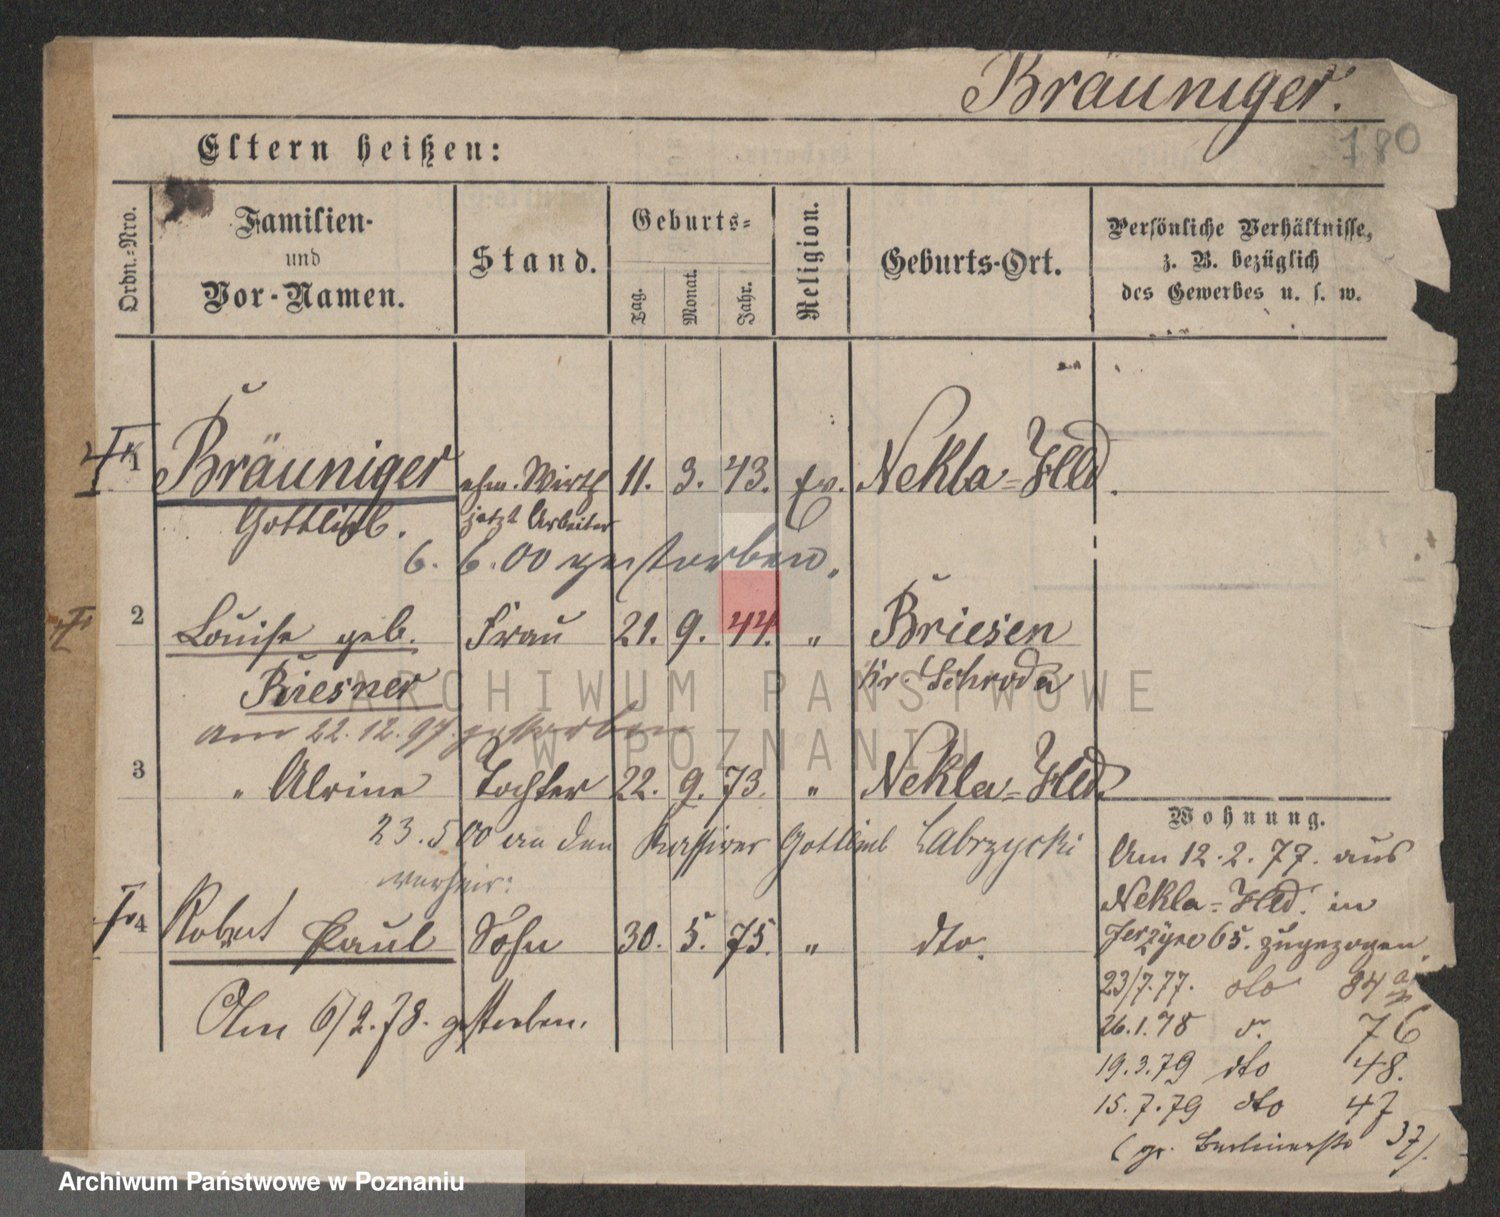 Bräuniger.
180
Eltern heißen:
Ordn.-Nro.
Familien-
und
Vor-Namen.
Stand.
Geburts-
Tag.
Monat.
Jahr.
Religion.
Geburts-Ort.
Persönliche Verhältnisse,
z. B. bezüglich
des Gewerbes u. s. w.
1 Bräuniger ehm. Wirth 11. 3. 43. ev. Nekla-Hld.
Gottlieb. jetzt Arbeiter
6. 6.00 gestorben.
2 Louise geb. Frau 21. 9. 44. " Briesen
Riesner Kr. Schroda
am 22.12.97. gestorben
3 " Alvine Tochter 22. 9. 73. " Nekla-Hld.
23.5 00 an den Kassirer Gottlieb Labrzycki
verheir:
4 Robert Paul Sohn 30. 5. 75. " dto.
Am 6/2.78. gestorben.
Wohnung.
Am 12.2.77. aus
Nekla-Hld. in
Jerzyce 65. zugezogen.
23/7.77. dto 84a
26.1.78 d. 76
19.3.79 dto 48.
15.7.79 dto 47
(gr. Berlinerstr 37).
ARCHIWUM PAŃSTWOWE
W POZNANIU
Archiwum Państwowe w Poznaniu